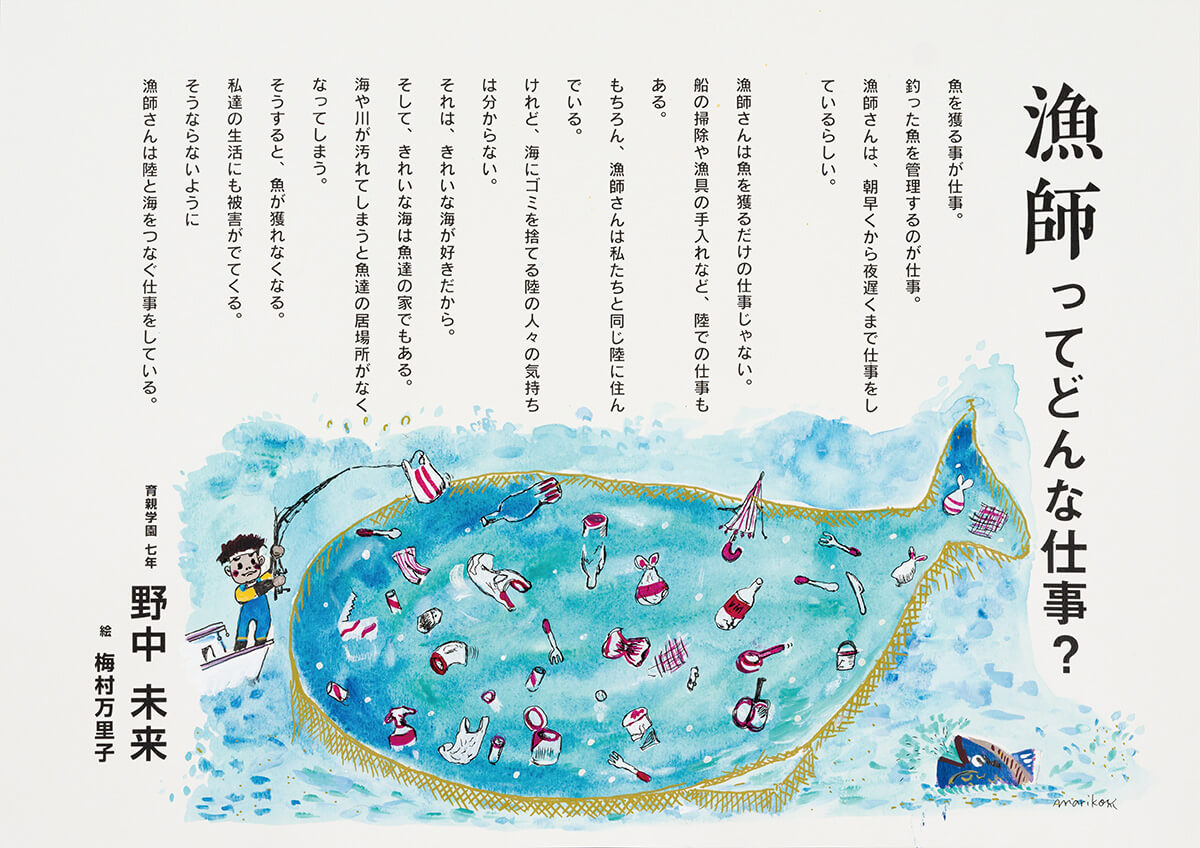 漁師ってどんな仕事?
魚を獲る事が仕事。
釣った魚を管理するのが仕事。
漁師さんは、朝早くから夜遅くまで仕事をし
ているらしい。
漁師さんは魚を獲るだけの仕事じゃない。
船の掃除や漁具の手入れなど、陸での仕事も
ある。
もちろん、漁師さんは私たちと同じ陸に住ん
でいる。
けれど、海にゴミを捨てる陸の人々の気持ち
は分からない。
それは、きれいな海が好きだから。
そして、きれいな海は魚達の家でもある。
海や川が汚れてしまうと魚達の居場所がなく
なってしまう。
そうすると、魚が獲れなくなる。
私達の生活にも被害がでてくる。
そうならないように
漁師さんは陸と海をつなぐ仕事をしている。
育親学園 七年 野中 未来
絵 梅村万里子